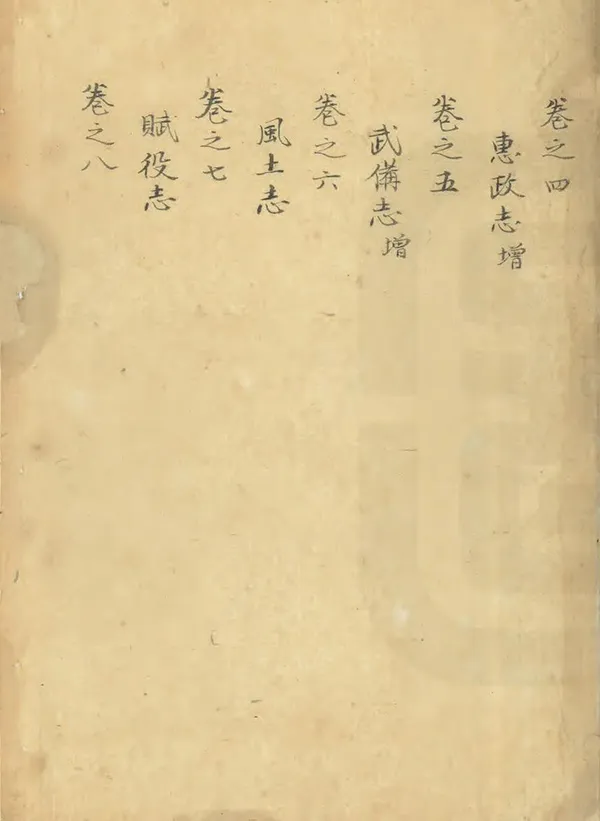 卷之四
惠政志增
卷之五
武備志增
卷之六
風土志
卷之七
賦役志
卷之八